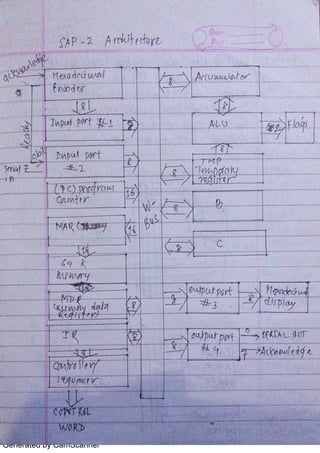 SAP-2 Architecture
acknowledge
Hexadecimal
Encoder
8
Accumulator
8
Ready
8
Input port #1
8
ALU
2
Flags
Serial
in
Input port
#2
8
8
TMP
Temporary
register
8
(PC) program
Counter
16
W-
Bus
8
B
MAR
16
8
C
16
64 K
Memory
MDR
(memory data
Register)
8
8
output port
#3
8
Hexadecimal
display
IR
8
8
output port
#4
0
SERIAL OUT
7
Acknowledge
8
Controller/
sequencer
CONTROL
WORD
Generated by CamScanner